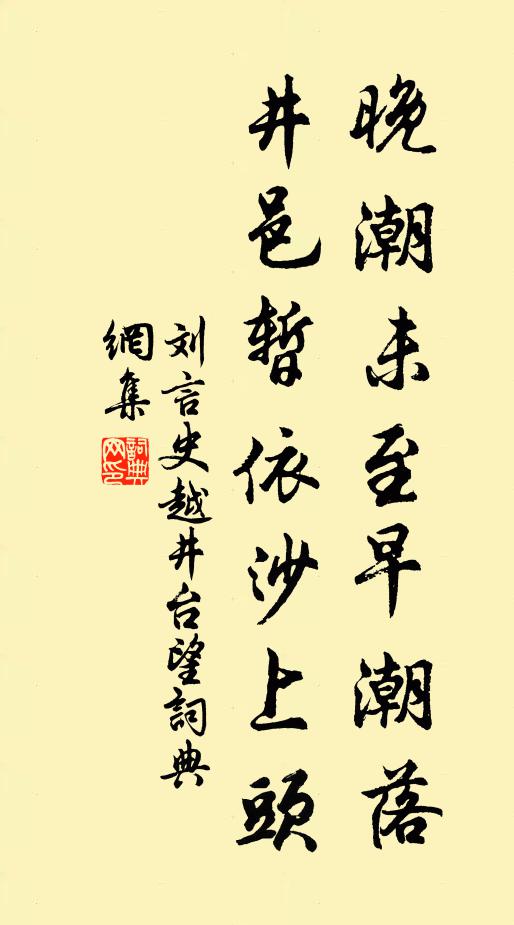 晚潮未至早潮落
井邑暫依沙上頭
刘言史越井台望詞典
網集
詞典网印